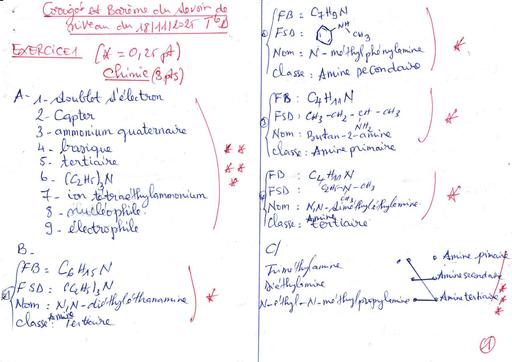 Corrigé et Barème du devoir de
niveau du 18/11/2025 TleD
EXERCICE 1 (* = 0,25 pt)
Chimie (8 pts)
A- 1- doublet d'électron
2- Capter
3- ammonium quaternaire
4- basique
5- tertiaire
6- (C2H5)3N
7- ion tétraéthylammonium
8- nucléophile
9- électrophile
B-
FB : C6H15N
FSD : (C2H5)3N
Nom : N,N-diéthyléthanamine
Classe : Amine Tertiaire
FB : C7H9N
FSD : NH CH3
Nom : N-méthylphénylamine
Classe : Amine secondaire
FB : C4H11N
FSD : CH3-CH2-CH-CH3
NH2
Nom : Butan-2-amine
Classe : Amine primaire
FB : C4H11N
FSD : C2H5-N-CH3
CH3
Nom : N,N-diméthyléthylamine
Classe : Amine tertiaire
C/
Triméthylamine
Diéthylamine
N-éthyl-N-méthylpropylamine
Amine primaire
Amine secondaire
Amine tertiaire
1